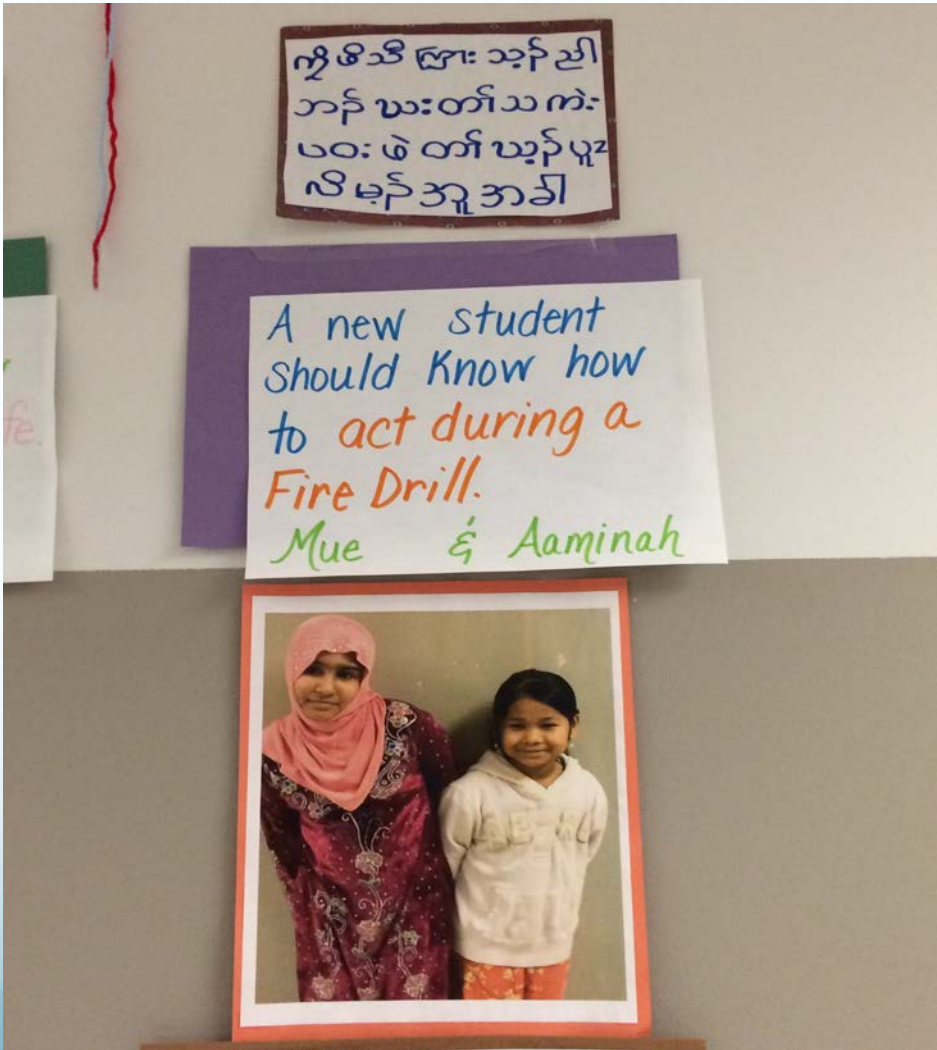 ကိၠဖိသီ ကြး သ့ၣ်ညါ
ဘၣ်ဃးတၢ်သကဲး
ပဝး ဖဲ တၢ်ဃ့ၣ်ပူၤ
လိမ့ၣ်အူအခါ
A new student
should know how
to act during a
Fire Drill.
Mue & Aaminah
fe.